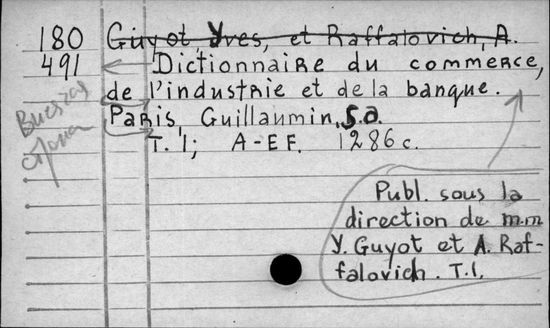 180 Guyot, Yves, et Raffalovich, A.
491 Dictionnaire du commerce,
de l'industrie et de la banque.
Paris, Guillaumin, S.a.
T. 1; A-EF. 1286 c.
Publ. sous la
direction de m.m
Y. Guyot et A. Raf-
falovich. T.1.